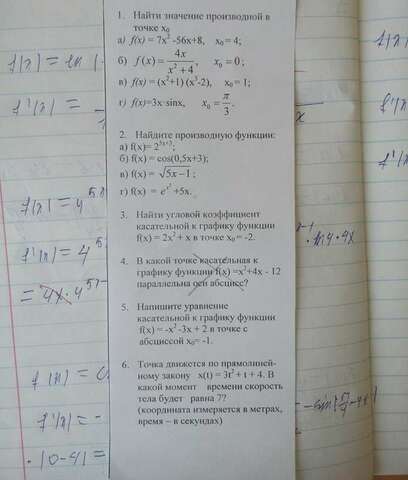 1. Найти значение производной в
точке x₀
а) f(x) = 7x² -56x+8, x₀ = 4;
б) f(x) = 4x / (x² + 4), x₀ = 0;
в) f(x) = (x²+1) (x³-2), x₀ = 1;
г) f(x)=3x·sinx, x₀ = π/3.
2. Найдите производную функции:
б) f(x)= cos(0,5x+3);
в) f(x) = √(5x − 1);
+5x.
3. Найти угловой коэффициент
касательной к графику функции
f(x) = 2x² + x в точке x₀ = -2.
4. В какой точке касательная к
графику функции f(x) =x²+4x - 12
параллельна оси абсцисс?
5. Напишите уравнение
касательной к графику функции
f(x) = -x² -3x + 2 в точке с
абсциссой x₀= -1.
6. Точка движется по прямолиней-
ному закону x(t) = 3t² + t + 4. В
какой момент времени скорость
тела будет равна 7?
(координата измеряется в метрах,
время – в секундах)
f(x) =
f'(x) =
f(x) = 4
f'(x) = 4
f'(x) = -